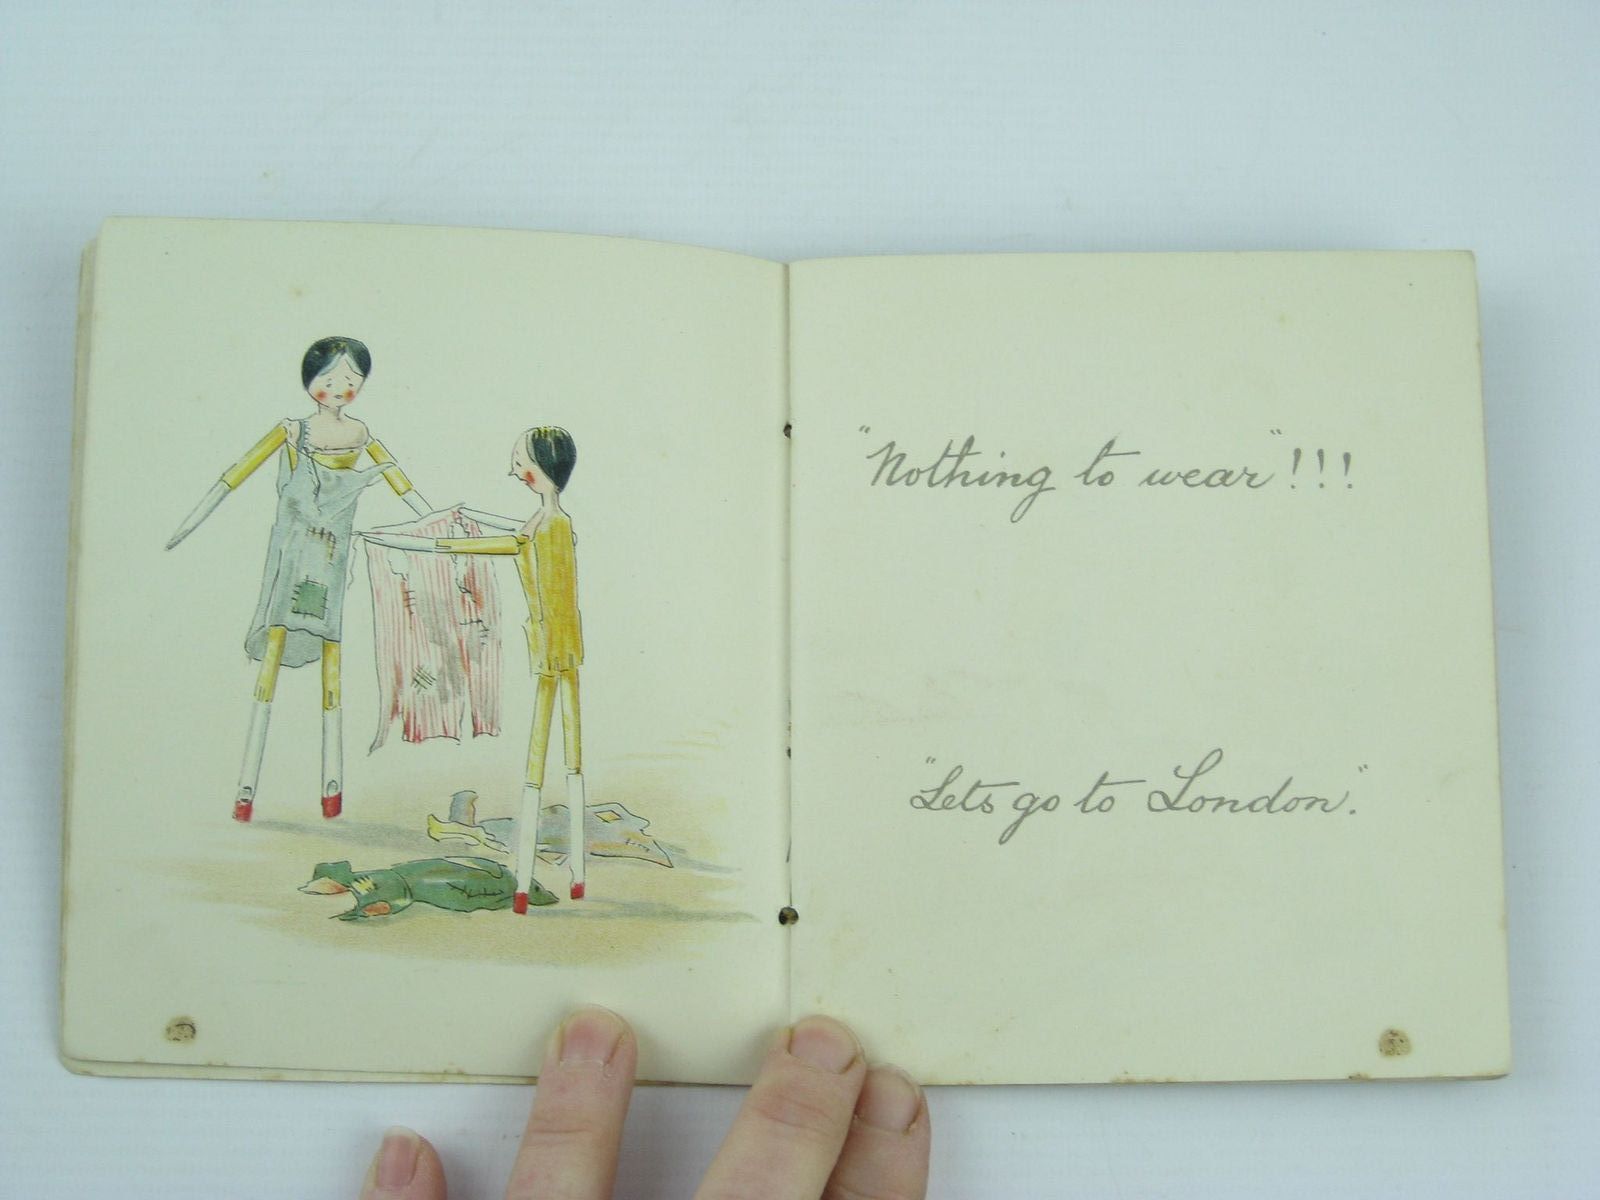 "Nothing to wear"!!!
"Lets go to London".